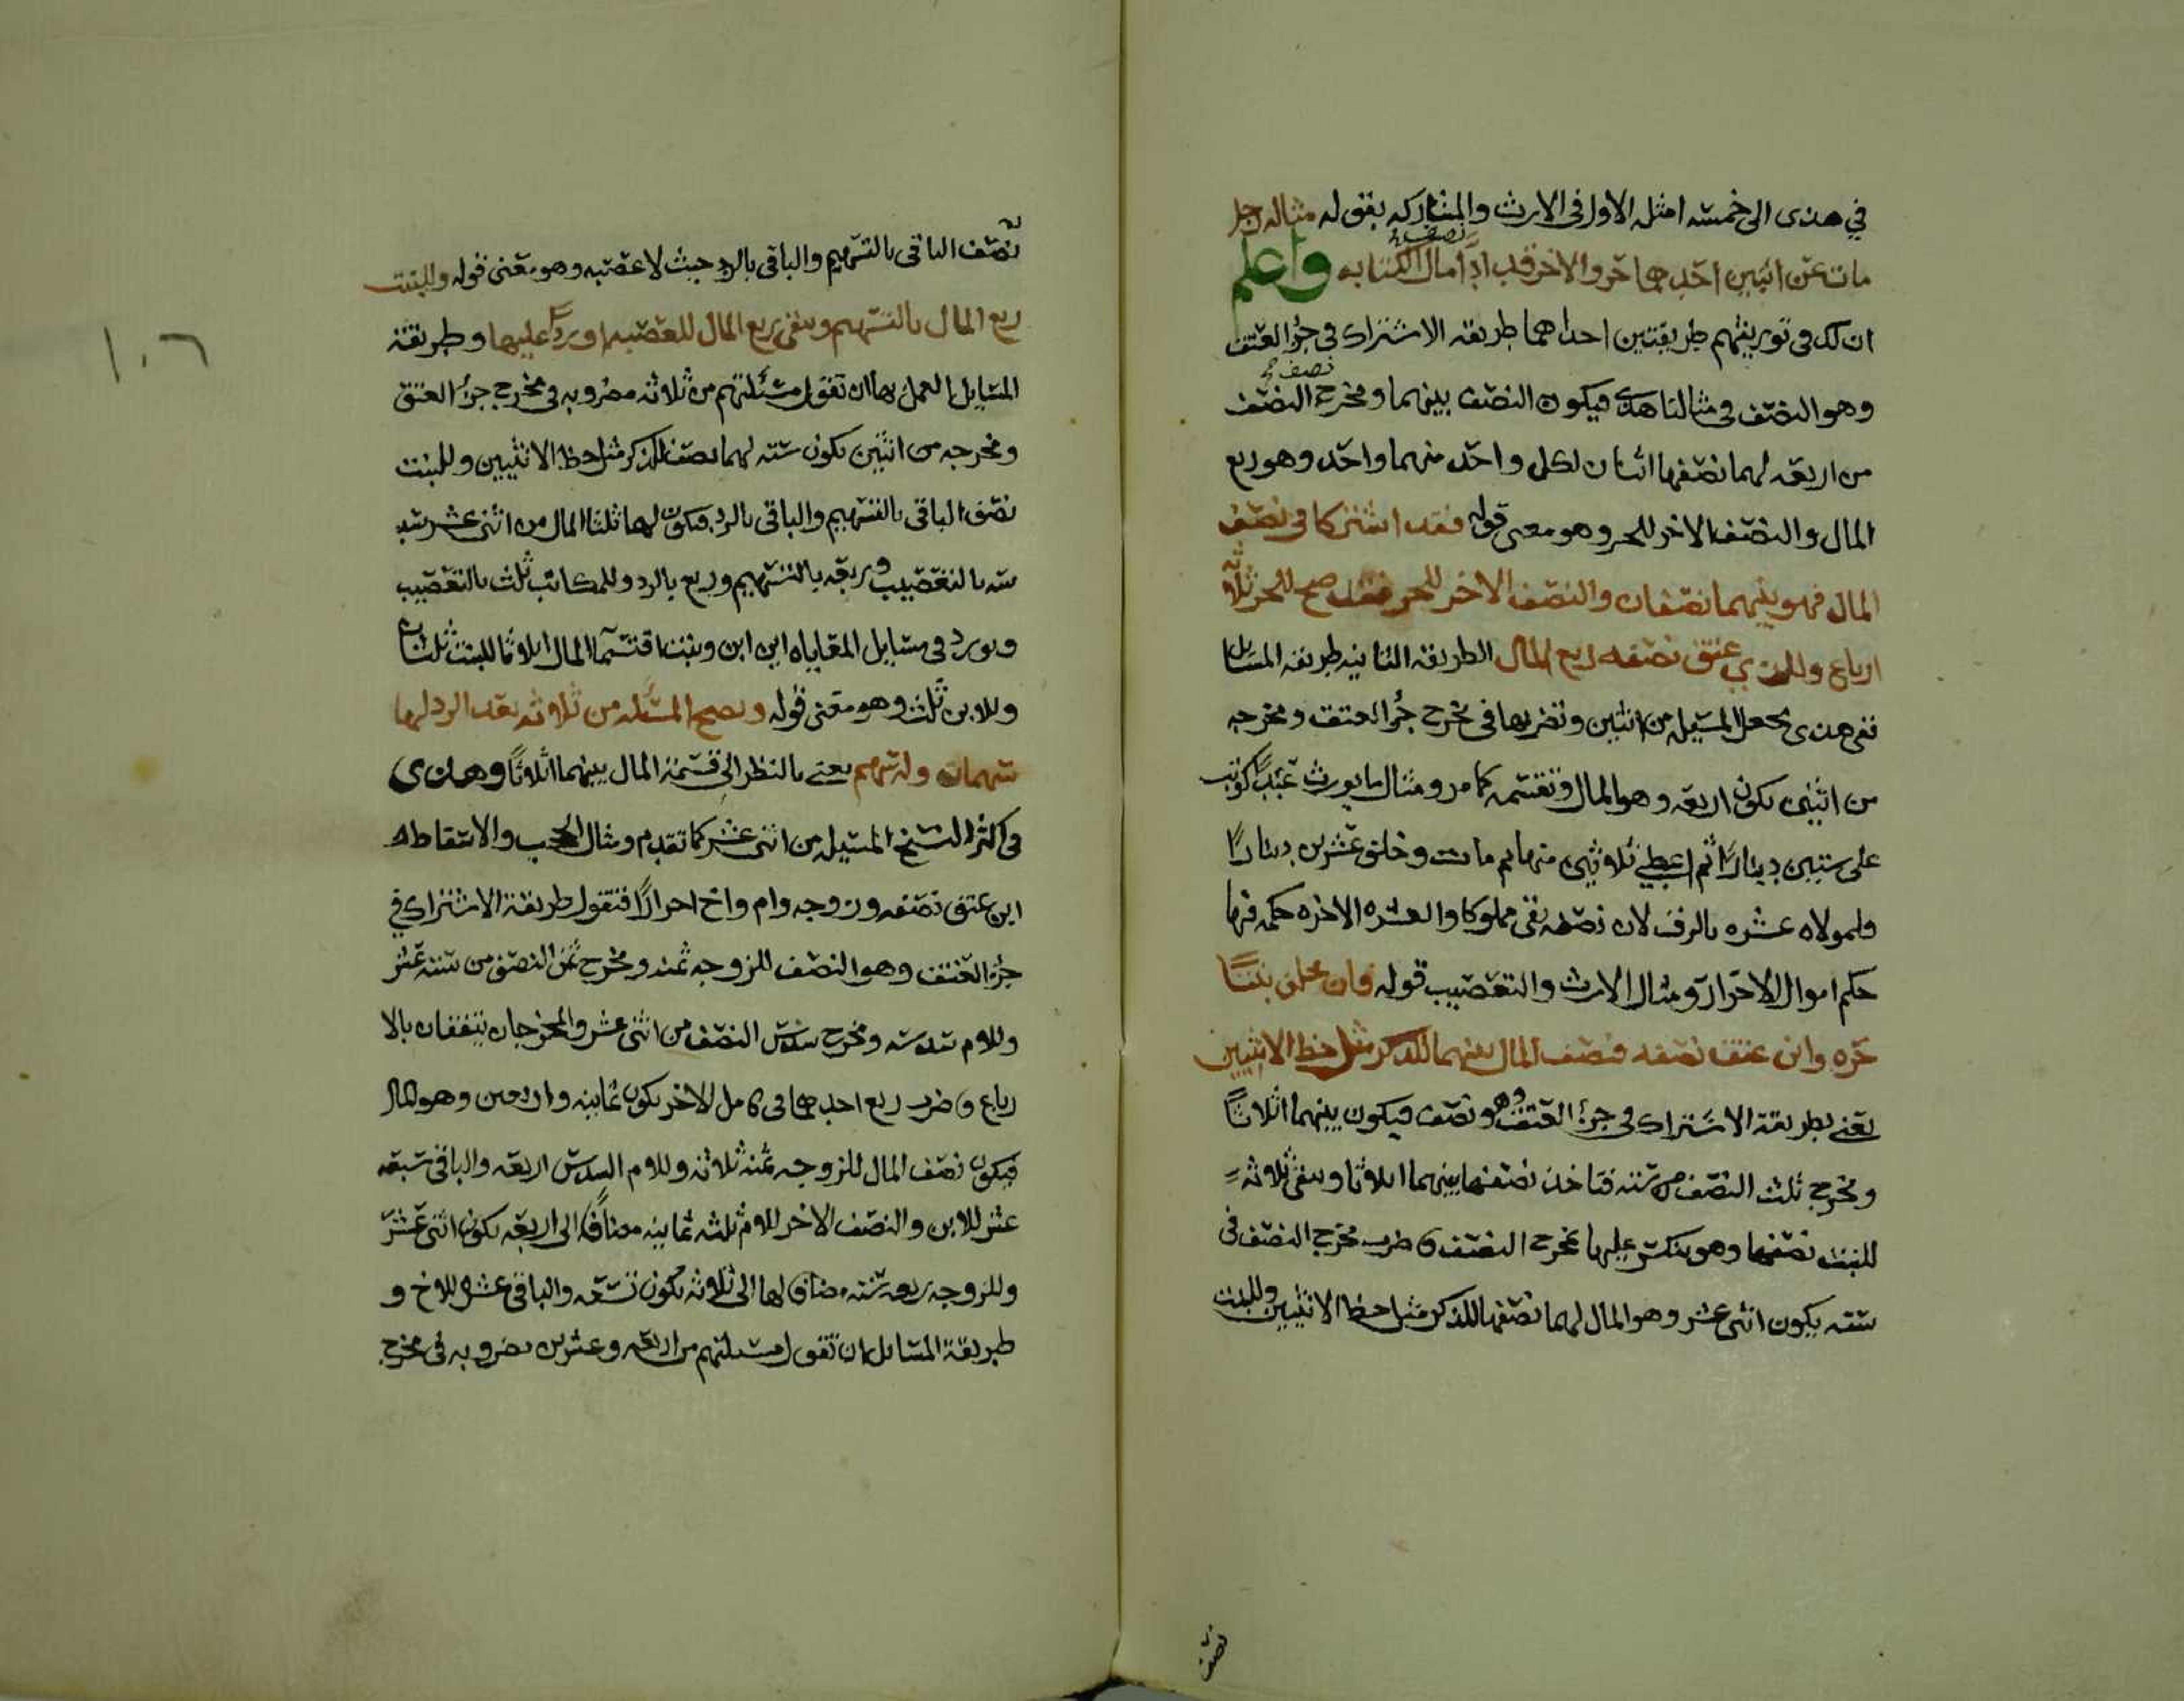 في هذى الى خمسه امثله الاول فى الارث والمشاركه بقوله مثاله رجل
مات عن ابنين احدهما حر والاخر قد ادا نصف مال الكتابه واعلم
ان لك فى توريثهم طريقتين احداهما طريقه الاشتراك فى جزء العتق
وهو النصف فى مثالنا هذى فيكون النصف بينهما ومخرج نصف النصف
من اربعه لهما نصفها اثنان لكل واحد منهما واحد وهو ربع
المال والنصف الاخر للحر وهو معنى قوله فقد اشتركا فى نصف
المال فهو بينهما نصفان والنصف الاخر للحر فقد صح للحر ثلاثه
ارباع وللذي عتق نصفه ربع المال الطريقه الثانيه طريقه المسائل
ففى هذى تجعل المسيله من اثنين وتضربها فى مخرج جزء العتق ومخرجه
من اثنين يكون اربعه وهو المال وتقسمه كما مر ومثال ما يورث عبدا كوتب
على ستين دينارا ثم اعطى ثلاثين منها ثم مات وخلف عشرين دينارا
فلمولاه عشره بالرق لان نصفه بقى مملوكا والعشره الاخره حكمه فيها
حكم اموال الاحرار ومثال الارث والتعصيب قوله فان خلف بنتا
حره وابن عتق نصفه فنصف المال بينهما للذكر مثل حظ الانثيين
يعنى بطريقة الاشتراك فى جزء العتق وهو نصف فيكون بينهما اثلاثا
ومخرج ثلث النصف من سته فتاخذ نصفها بينهما اثلاثا ويبقى ثلاثه
للبنت نصفها وهو ينكسر عليها بمخرج النصف فاضرب مخرج النصف فى
سته يكون اثنى عشر وهو المال لهما نصفها للذكر مثل حظ الانثيين وللبنت
نصف
نصف الباقى بالتسهيم والباقى بالرد حيث لا عصبه وهو معنى قوله وللبنت
ربع المال بالتسهيم ويبقى ربع المال للعصبه او ردا عليها وطريقة
المسايل العمل بها ان تقول مسئلتهم من ثلاثه مضروبه فى مخرج جزء العتق
ومخرجه من اثنين يكون سته لهما نصف للذكر مثل حظ الانثيين وللبنت
نصف الباقى بالتسهيم والباقى بالرد فيكون لها ثلثا المال من اثنى عشر
سته بالتعصيب وربعه بالتسهيم وربع بالرد وللمكاتب ثلث بالتعصيب
ويورد فى مسايل المعاياه اين ابن وبنت اقتسما المال اثلاثا للبنت ثلثان
وللابن ثلث وهو معنى قوله وتصح المسئله من ثلاثه بعد الرد لها
سهمان وله سهم يعنى بالنظر الى قسمة المال بينهما اثلاثا وهذى
فى اكثر النسخ المسيله من اثنى عشر كما تقدم ومثال الحجب والاسقاط
ابن عتق نصفه وزوجه وام واخ احرارا فتقول طريقة الاشتراك في
جزء العتق وهو النصف للزوجه ثمنه ومخرج ثمن النصف من سته عشر
وللام سدسه ومخرج سدس النصف من اثنى عشر والمخرجان يتفقان بالا
رباع فاضرب ربع احدهما فى كامل الاخر يكون ثمانيه واربعين وهو المال
فيكون نصف المال للزوجه ثمنه ثلاثه وللام السدس اربعه والباقى سبعه
عشر للابن والنصف الاخر للام ثلثه ثمانيه مضافا الى اربعه يكون اثنى عشر
وللزوجه ربعه سته مضاف لها الى ثلاثه يكون تسعه والباقى عشره للاخ و
طريقة المسايل ان تقول مسيلتهم من اربعه وعشرين مضروبه فى مخرج
١٠٦